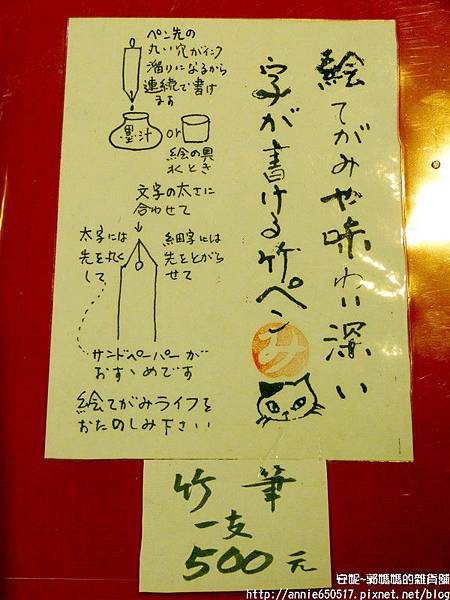 絵てがみや味わい深い
字が書ける竹ペン
み
ペン先の
丸い穴がインク
溜りになるから
連続で書け
ます
墨汁
or
絵の具
水とき
文字の太さに
合わせて
太字には
先を丸く
して
細字には
先をとがら
せて
サンドペーパーが
おすゝめです
絵てがみライフを
おたのしみ下さい
竹筆
一支
500元
安妮~郭媽媽的雜貨舖
http://annie650517.pixnet.net/blog